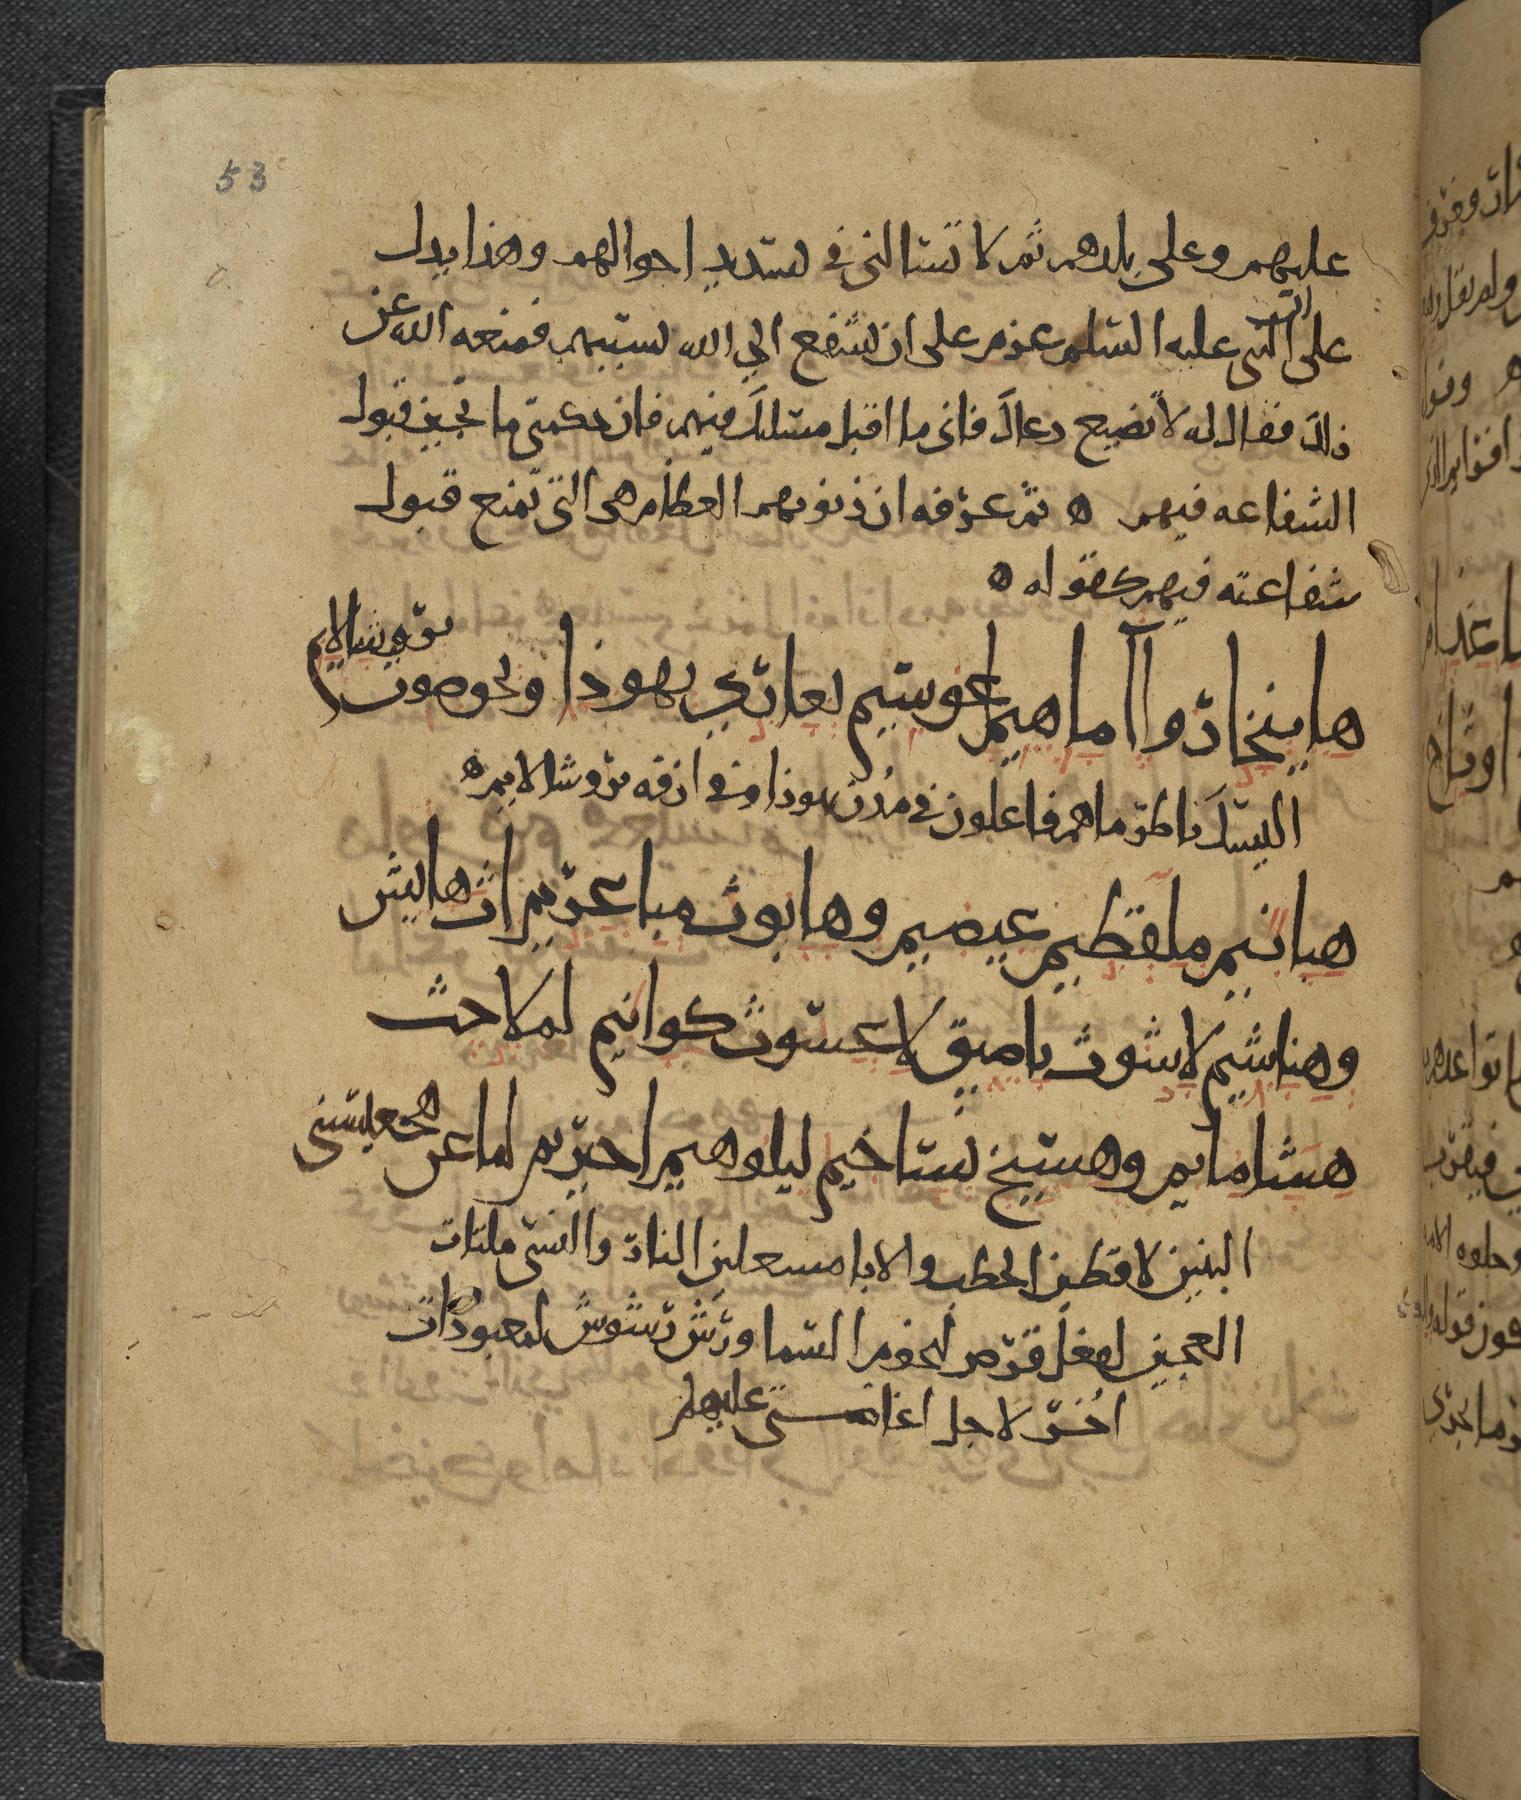 53
عليهم وعلى بلدهم ثم لا تسالنى فى تسديد احوالهم وهذا يدل
على ان النبى عليه السلم عزم على ان يشفع الي الله بسببهم فمنعه الله عن
ذلك فقال له لا تضيع دعاك فانى ما اقبل مسلتك فيهم فان حكمتى ما تجيز قبول
الشفاعه فيهم ه ثم عرفه ان ذنوبهم العظام هى التى تمنع قبول
شفاعته فيهم كقوله ه
هاينخا روا اما هيم عوسيم بعاري يهوذا وبحوصوت يروشالايم
اليسك ناظر ما هم فاعلون فى مدن يهوذا وفى ازقه يروشالايم ه
هبانيم ملقطيم عيصيم وهابوث مباعريم اث هايش
وهناشيم لاشوث باصيق لاعسوث كوانيم لملاخث
هشامايم وهسيخ نساخيم ليلوهيم احيريم لماعن هخعيسنى
البنين لاقطين الحطب والابا مسعلين النار والنسى ملتات
العجين لعمل قرص لنجوم السما ورش رشوش لمعبودات
اخر لاجل اغاضتى عليهم